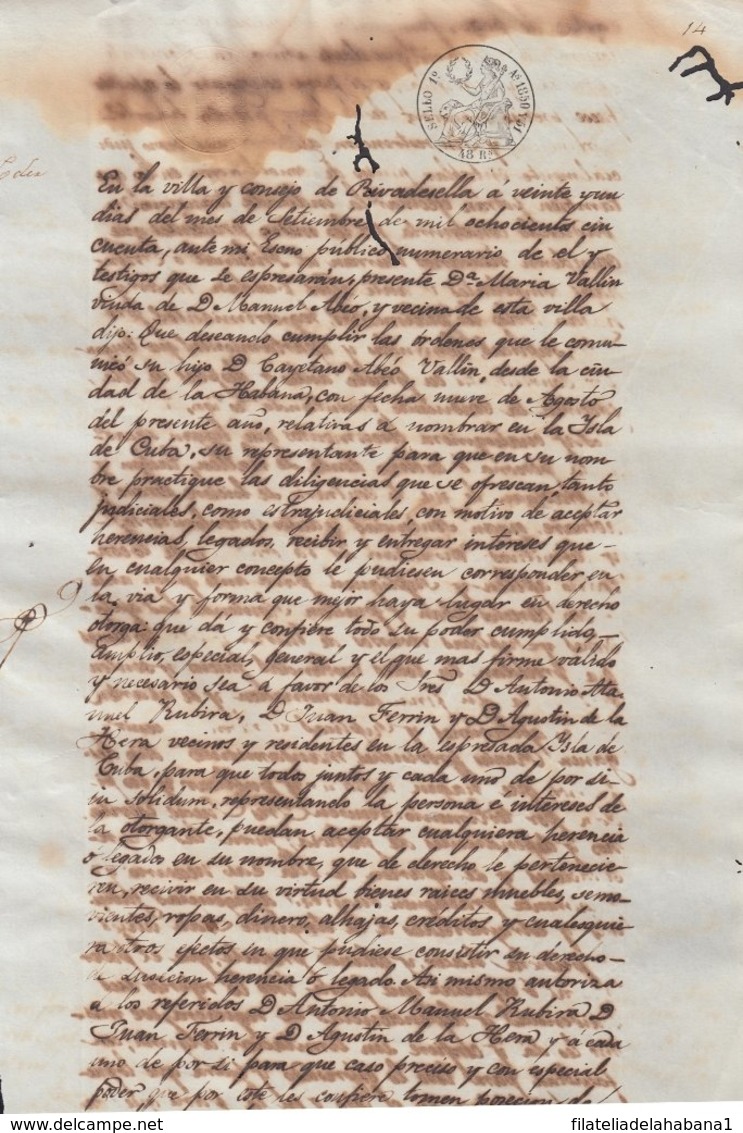 14
SELLO 1º As 1850 Y 51
48 Rs
En la villa y consejo de Rivadesella á veinte y un
dias del mes de Setiembre de mil ochocientos cin
cuenta, ante mi Escno público numerario de el y
testigos que se espresarán, presente Dª Maria Vallin
viuda de D Manuel Abéo, y vecina de esta villa
dijo: Que deseando cumplir las órdenes que le comu-
nicó su hijo D Cayetano Abéo Vallin, desde la ciu
dad de la Habana, con fecha nueve de Agosto
del presente año, relativas a nombrar en la Isla
de Cuba, su representante para que en su nom
bre practique las diligencias que se ofrescan, tanto
judiciales, como estrajudiciales, con motivo de aceptar
herencias, legados, recibir y entregar intereses que-
en cualquier concepto le pudiesen corresponder, en
la via y forma que mejor haya lugar en derecho
otorga: que dá y confiere todo su poder cumplido,-
amplio, especial, general y el que mas firme válido
y necesario sea á favor de los Sres D Antonio Ma-
nuel Rubira, D Juan Ferrin y D Agustin de la
Hera vecinos y residentes en la espresada Isla de
Cuba, para que todos juntos y cada uno de por si
in solidum, representando la persona é intereses de
la otorgante, puedan aceptar cualquiera herencia
ó legados en su nombre, que de derecho le pertenecie-
ren, recivir en su virtud bienes raices muebles, semo-
vientes, ropas, dinero, alhajas, créditos y cualesquie
ra otros efectos en que pudiese consistir su derecho-
herencia ó legado. Asi mismo autoriza
á los referidos D Antonio Manuel Rubira D
Juan Ferrin y D Agustin de la Hera, y á cada
uno de por si para que caso preciso y con especial
poder que por este les confiere tomen posecion de
filateliadelahabana1